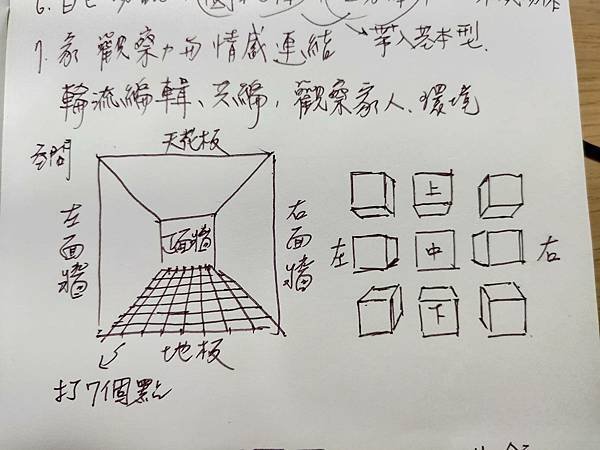 7. 家 觀察力与情感連結 → 帶入基本型.
輪流編輯、共編, 觀察家人、環境
空間
天花板
左面牆
正面牆
右面牆
地板
打7個點
上
左 中 右
下